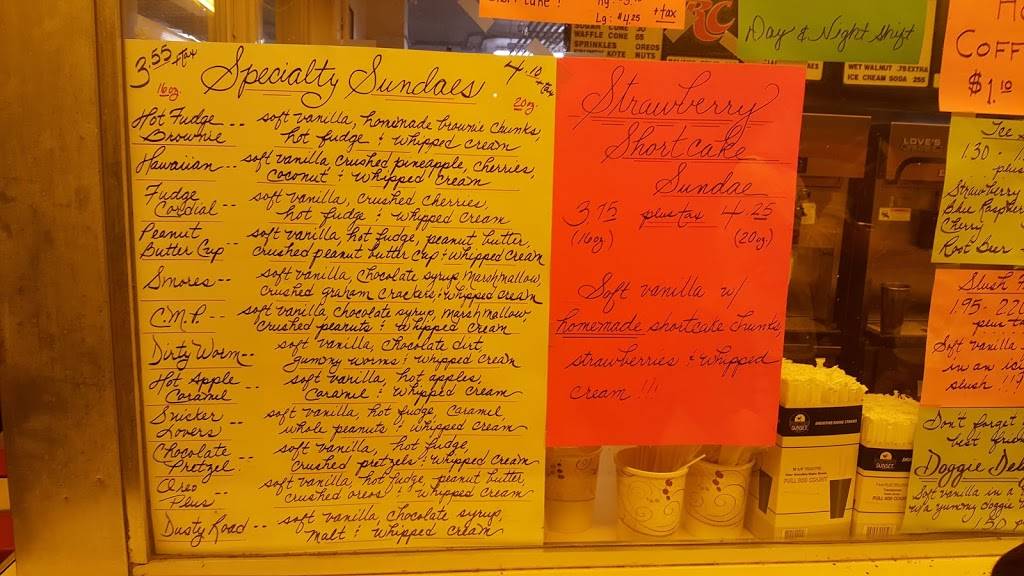 3.55 + tax
16oz.
Specialty Sundaes
4.10
20oz.
Hot Fudge Brownie -- soft vanilla, homemade brownie chunks,
hot fudge & whipped cream
Hawaiian -- soft vanilla crushed pineapple, cherries,
coconut & whipped cream
Fudge Cordial -- soft vanilla, crushed cherries,
hot fudge & whipped cream
Peanut Butter Cup -- soft vanilla, hot fudge, peanut butter,
crushed peanut butter cup & whipped cream
Smores -- soft vanilla, chocolate syrup, marshmallow,
crushed graham crackers & whipped cream
C.M.P. -- soft vanilla, chocolate syrup, marshmallow,
crushed peanuts & whipped cream
Dirty Worm -- soft vanilla, chocolate dirt
gummy worms & whipped cream
Hot Apple Caramel -- soft vanilla, hot apples,
caramel & whipped cream
Snicker Lovers -- soft vanilla, hot fudge, caramel,
whole peanuts & whipped cream
Chocolate Pretzel -- soft vanilla, hot fudge,
crushed pretzels & whipped cream
Oreo Plus -- soft vanilla, hot fudge, peanut butter,
crushed oreos & whipped cream
Dusty Road -- soft vanilla, chocolate syrup,
malt & whipped cream
Strawberry
Shortcake
Sundae
3.75 plus tax 4.25
(16oz) (20oz.)
Soft vanilla w/
homemade shortcake chunks
strawberries & whipped
cream !!!
Lg: $4.25 + tax
RC
WAFFLE CONE 65
SPRINKLES OREOS
NUTS
Day & Night shift
WET WALNUT .75 EXTRA
ICE CREAM SODA 255
COFF
$1.10
LOVE'S
1.30
plus
Strawberry
Blue Raspber
Cherry
Root Beer
Slush
1.95 - 2.20
plus tax
Soft vanilla
in an ici
slush !!!
Don't forget
best frien
Doggie Del
Soft vanilla in a
w/a yummy doggie
SUNSET
SUNSET